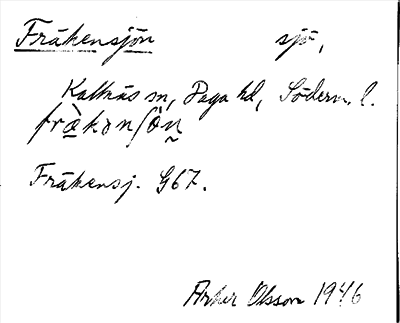 Fräkensjön sjö,
Kattnäs sn, Daga hd, Söderm. l.
frä̀kənʃö̀n̰
Fräkensj. G67.
Arthur Olsson 1946